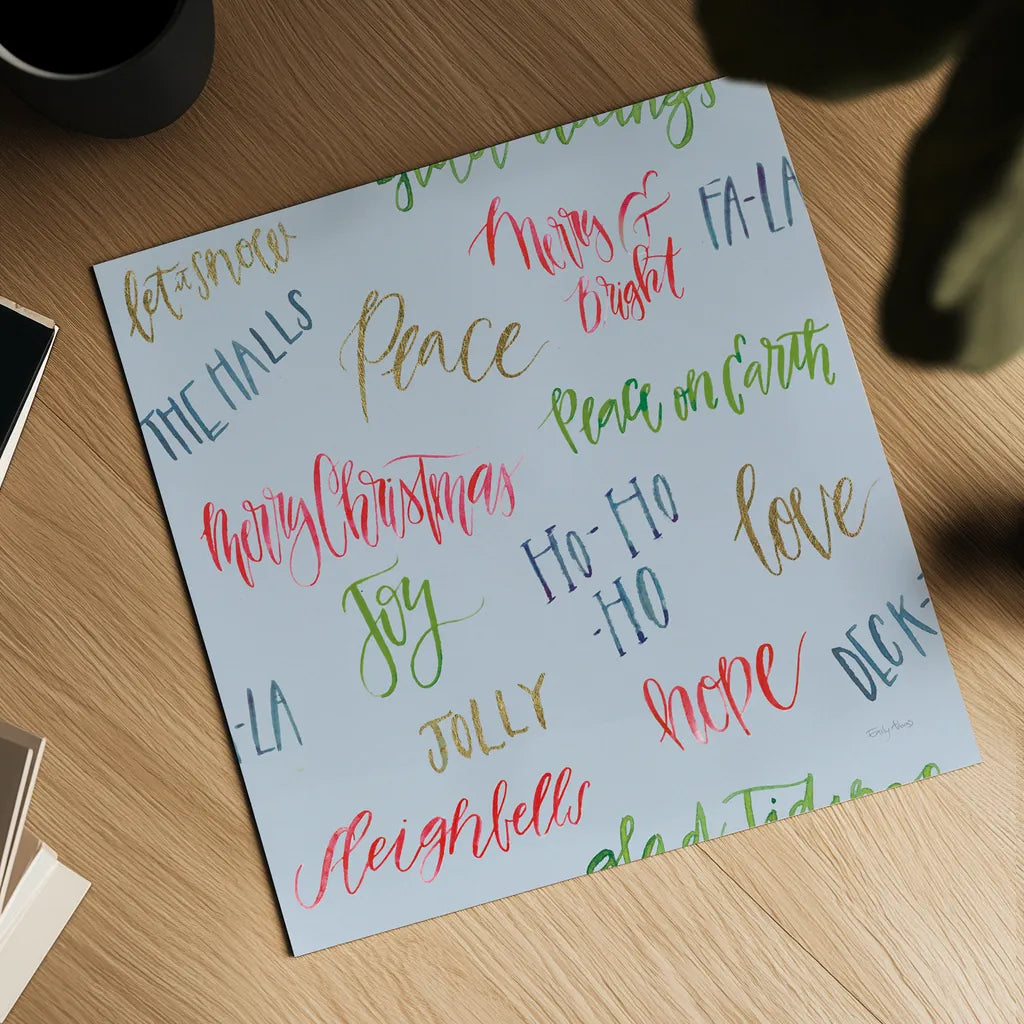 glad tidings
let it snow
Merry &
Bright
FA-LA
THE HALLS
Peace
Peace on Earth
Merry Christmas
HO-HO
-HO
love
Joy
DECK-
-LA
JOLLY
hope
Sleighbells
glad Tidings